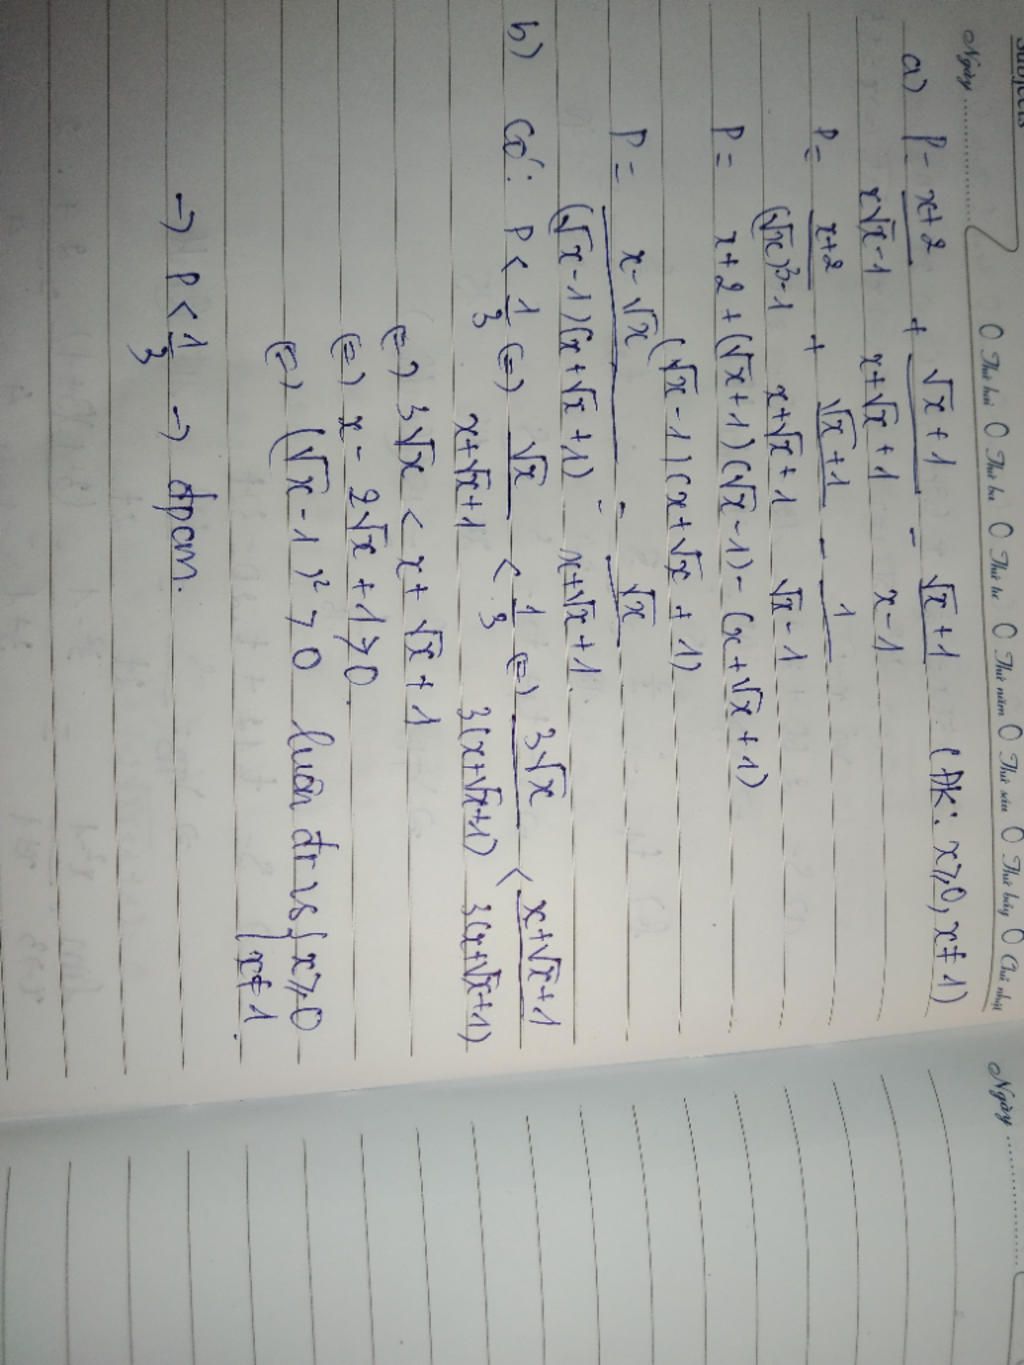 Subjects
Ngày ............ O Thứ hai O Thứ ba O Thứ tư O Thứ năm O Thứ sáu O Thứ bảy O Chủ nhật
a) P = (x+2)/(x√x-1) + (√x+1)/(x+√x+1) - (√x+1)/(x-1) (ĐK: x≥0, x≠1)
P = (x+2)/((√x)³-1) + (√x+1)/(x+√x+1) - 1/(√x-1)
P = (x+2+(√x+1)(√x-1)-(x+√x+1))/((√x-1)(x+√x+1))
P = (x-√x)/((√x-1)(x+√x+1)) = √x/(x+√x+1).
b) Có: P < 1/3 (=) √x/(x+√x+1) < 1/3 (=) 3√x/(3(x+√x+1)) < (x+√x+1)/(3(x+√x+1))
(=) 3√x < x+√x+1
(=) x-2√x+1>0.
(=) (√x-1)² > 0 luôn đr vs { x≥0
x≠1.
→ P < 1/3 → đpcm.
Ngày ............